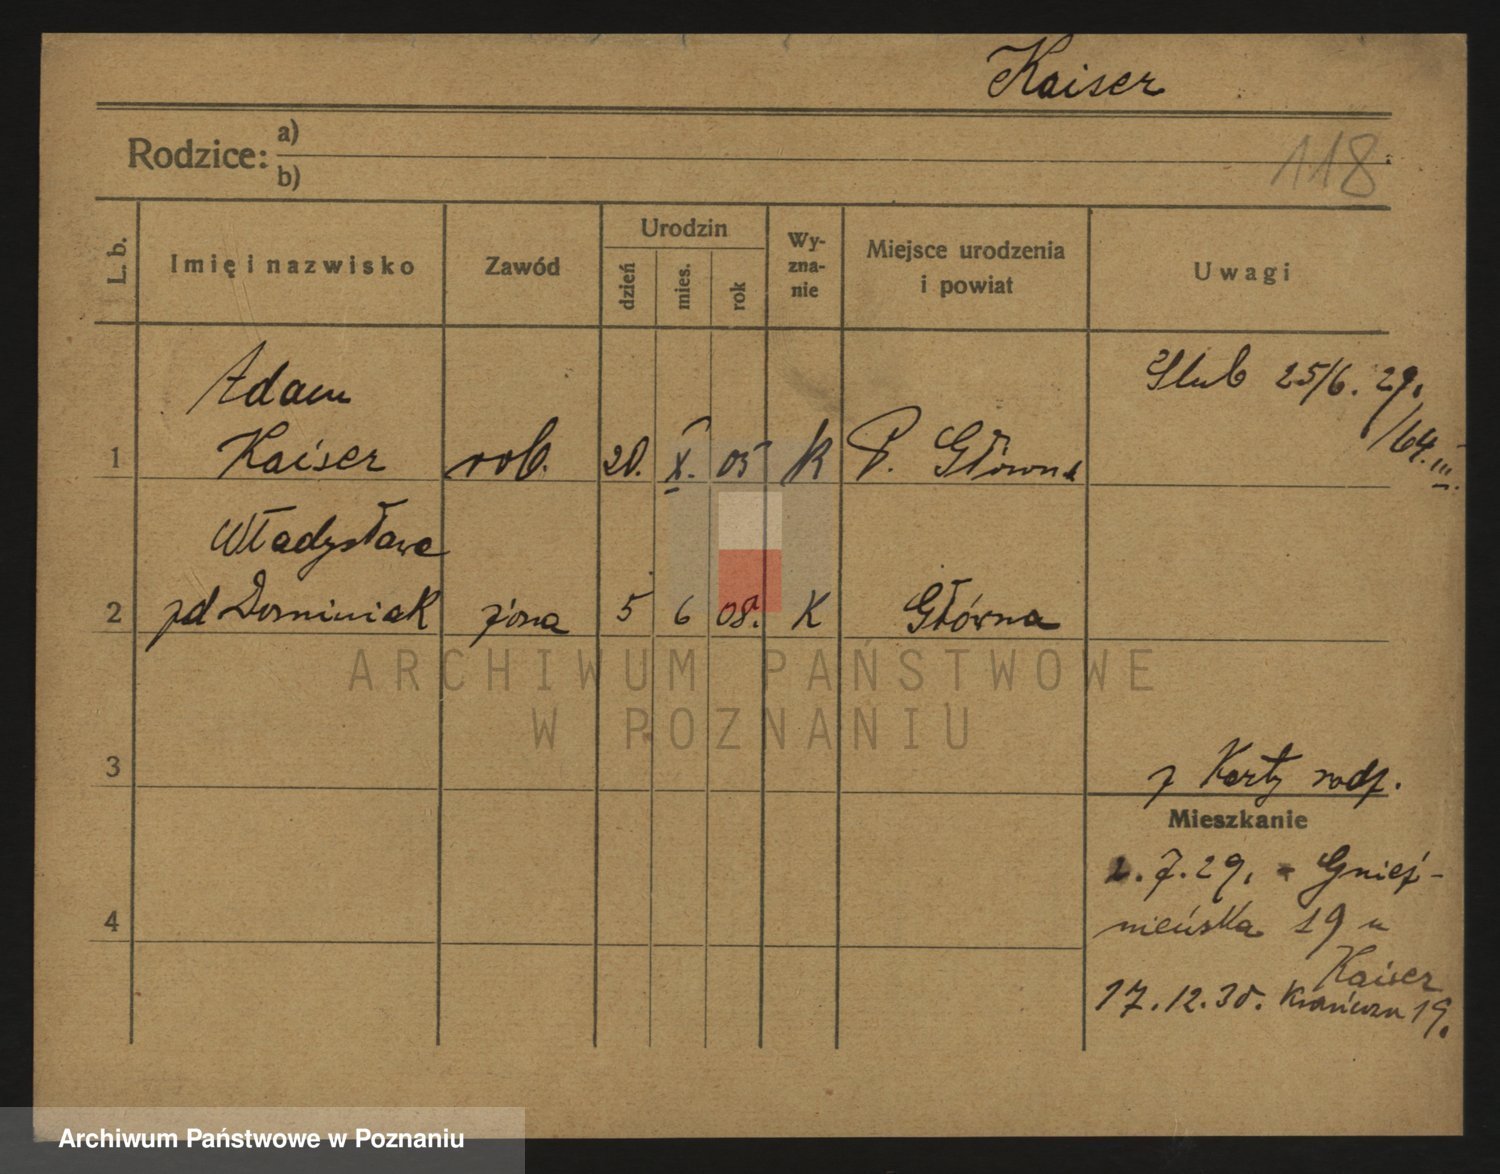 Kaiser
Rodzice: a)
b)
118
L. b.
Imię i nazwisko
Zawód
Urodzin
dzień
mies.
rok
Wy-
zna-
nie
Miejsce urodzenia
i powiat
Uwagi
Adam
1 Kaiser rob. 20. X. 05 K P. Główna
Ślub 25/6. 29.
/64. III.
Władysława
2 zd Dominiak żona 5 6 08. K Główna
3
z Karty rodz.
Mieszkanie
2.7.29. - Gniez-
nieńska 19 u
Kaiser
17.12.30. Krańcowa 19.
4
ARCHIWUM PAŃSTWOWE
W POZNANIU
Archiwum Państwowe w Poznaniu